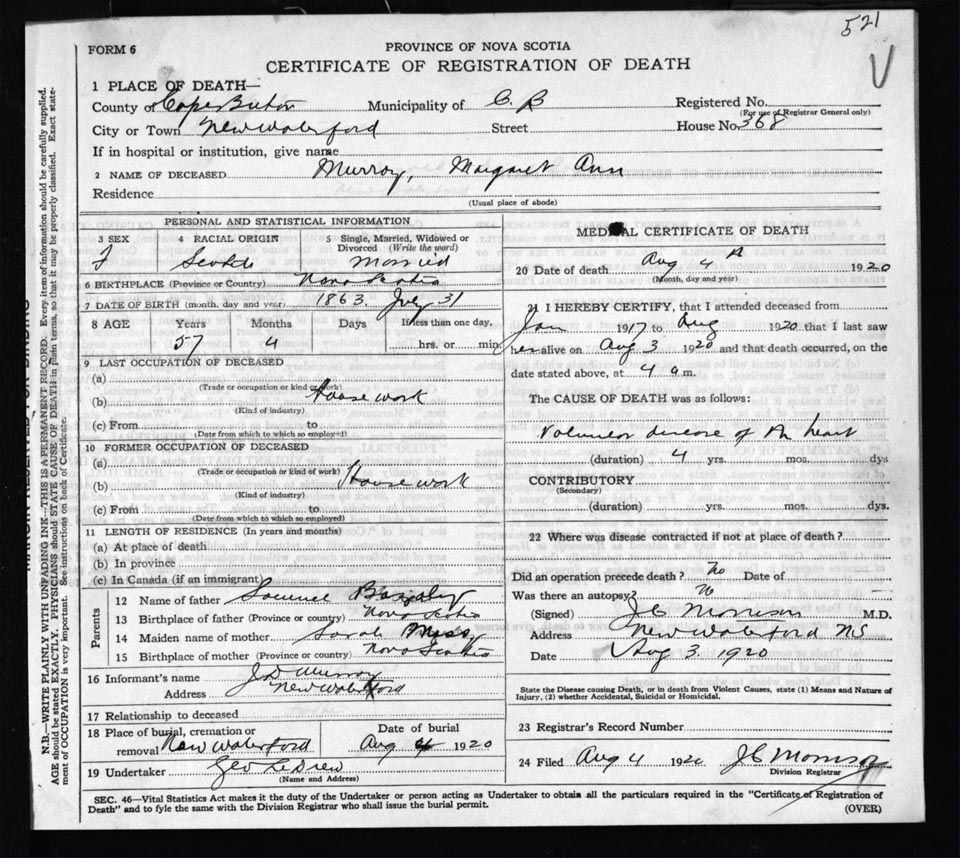 521
V
FORM 6
PROVINCE OF NOVA SCOTIA
CERTIFICATE OF REGISTRATION OF DEATH
1 PLACE OF DEATH—
County of Cape Breton Municipality of C. B Registered No.
(For use of Registrar General only)
City or Town New Waterford Street House No. 368
If in hospital or institution, give name
2 NAME OF DECEASED Murray, Margaret Ann
Residence
(Usual place of abode)
PERSONAL AND STATISTICAL INFORMATION
3 SEX 4 RACIAL ORIGIN 5 Single, Married, Widowed or Divorced (Write the word)
F Scotch Married
6 BIRTHPLACE (Province or Country) Nova Scotia
7 DATE OF BIRTH (month, day and year) 1863. July 31
8 AGE Years Months Days If less than one day,
57 4 hrs. or min.
9 LAST OCCUPATION OF DECEASED
(a)
(Trade or occupation or kind of work)
(b) House work
(Kind of industry)
(c) From to
(Date from which to which so employed)
10 FORMER OCCUPATION OF DECEASED
(a)
(Trade or occupation or kind of work)
(b) House work
(Kind of industry)
(c) From to
(Date from which to which so employed)
11 LENGTH OF RESIDENCE (In years and months)
(a) At place of death
(b) In province
(c) In Canada (if an immigrant)
Parents
12 Name of father Samuel
13 Birthplace of father (Province or country) Nova Scotia
14 Maiden name of mother Sarah
15 Birthplace of mother (Province or country) Nova Scotia
16 Informant's name J D Murray
Address New Waterford
17 Relationship to deceased
18 Place of burial, cremation or removal New Waterford Date of burial Aug 4 1920
19 Undertaker Geo LeDrew
(Name and Address)
MEDICAL CERTIFICATE OF DEATH
20 Date of death Aug 4 1920
(Month, day and year)
21 I HEREBY CERTIFY, that I attended deceased from
Jan 1917 to Aug 1920 that I last saw
her alive on Aug 3 1920 and that death occurred, on the
date stated above, at 4 a.m.
The CAUSE OF DEATH was as follows:
Valvular disease of the heart
(duration) 4 yrs. mos. dys
CONTRIBUTORY
(Secondary)
(duration) yrs. mos. dys.
22 Where was disease contracted if not at place of death?
Did an operation precede death? No Date of
Was there an autopsy? No
(Signed) J C Morrison M.D.
Address New Waterford NS
Date Aug 3. 1920
State the Disease causing Death, or in death from Violent Causes, state (1) Means and Nature of
Injury, (2) whether Accidental, Suicidal or Homicidal.
23 Registrar's Record Number
24 Filed Aug 4 1920 J C Morrison
Division Registrar
SEC. 46—Vital Statistics Act makes it the duty of the Undertaker or person acting as Undertaker to obtain all the particulars required in the "Certificate of Registration of
Death" and to fyle the same with the Division Registrar who shall issue the burial permit.
(OVER)
N.B.—WRITE PLAINLY, WITH UNFADING INK—THIS IS A PERMANENT RECORD. Every item of information should be carefully supplied.
AGE should be stated EXACTLY. PHYSICIANS should STATE CAUSE OF DEATH in plain terms, so that it may be properly classified. Exact state-
ment of OCCUPATION is very important. See instructions on back of Certificate.